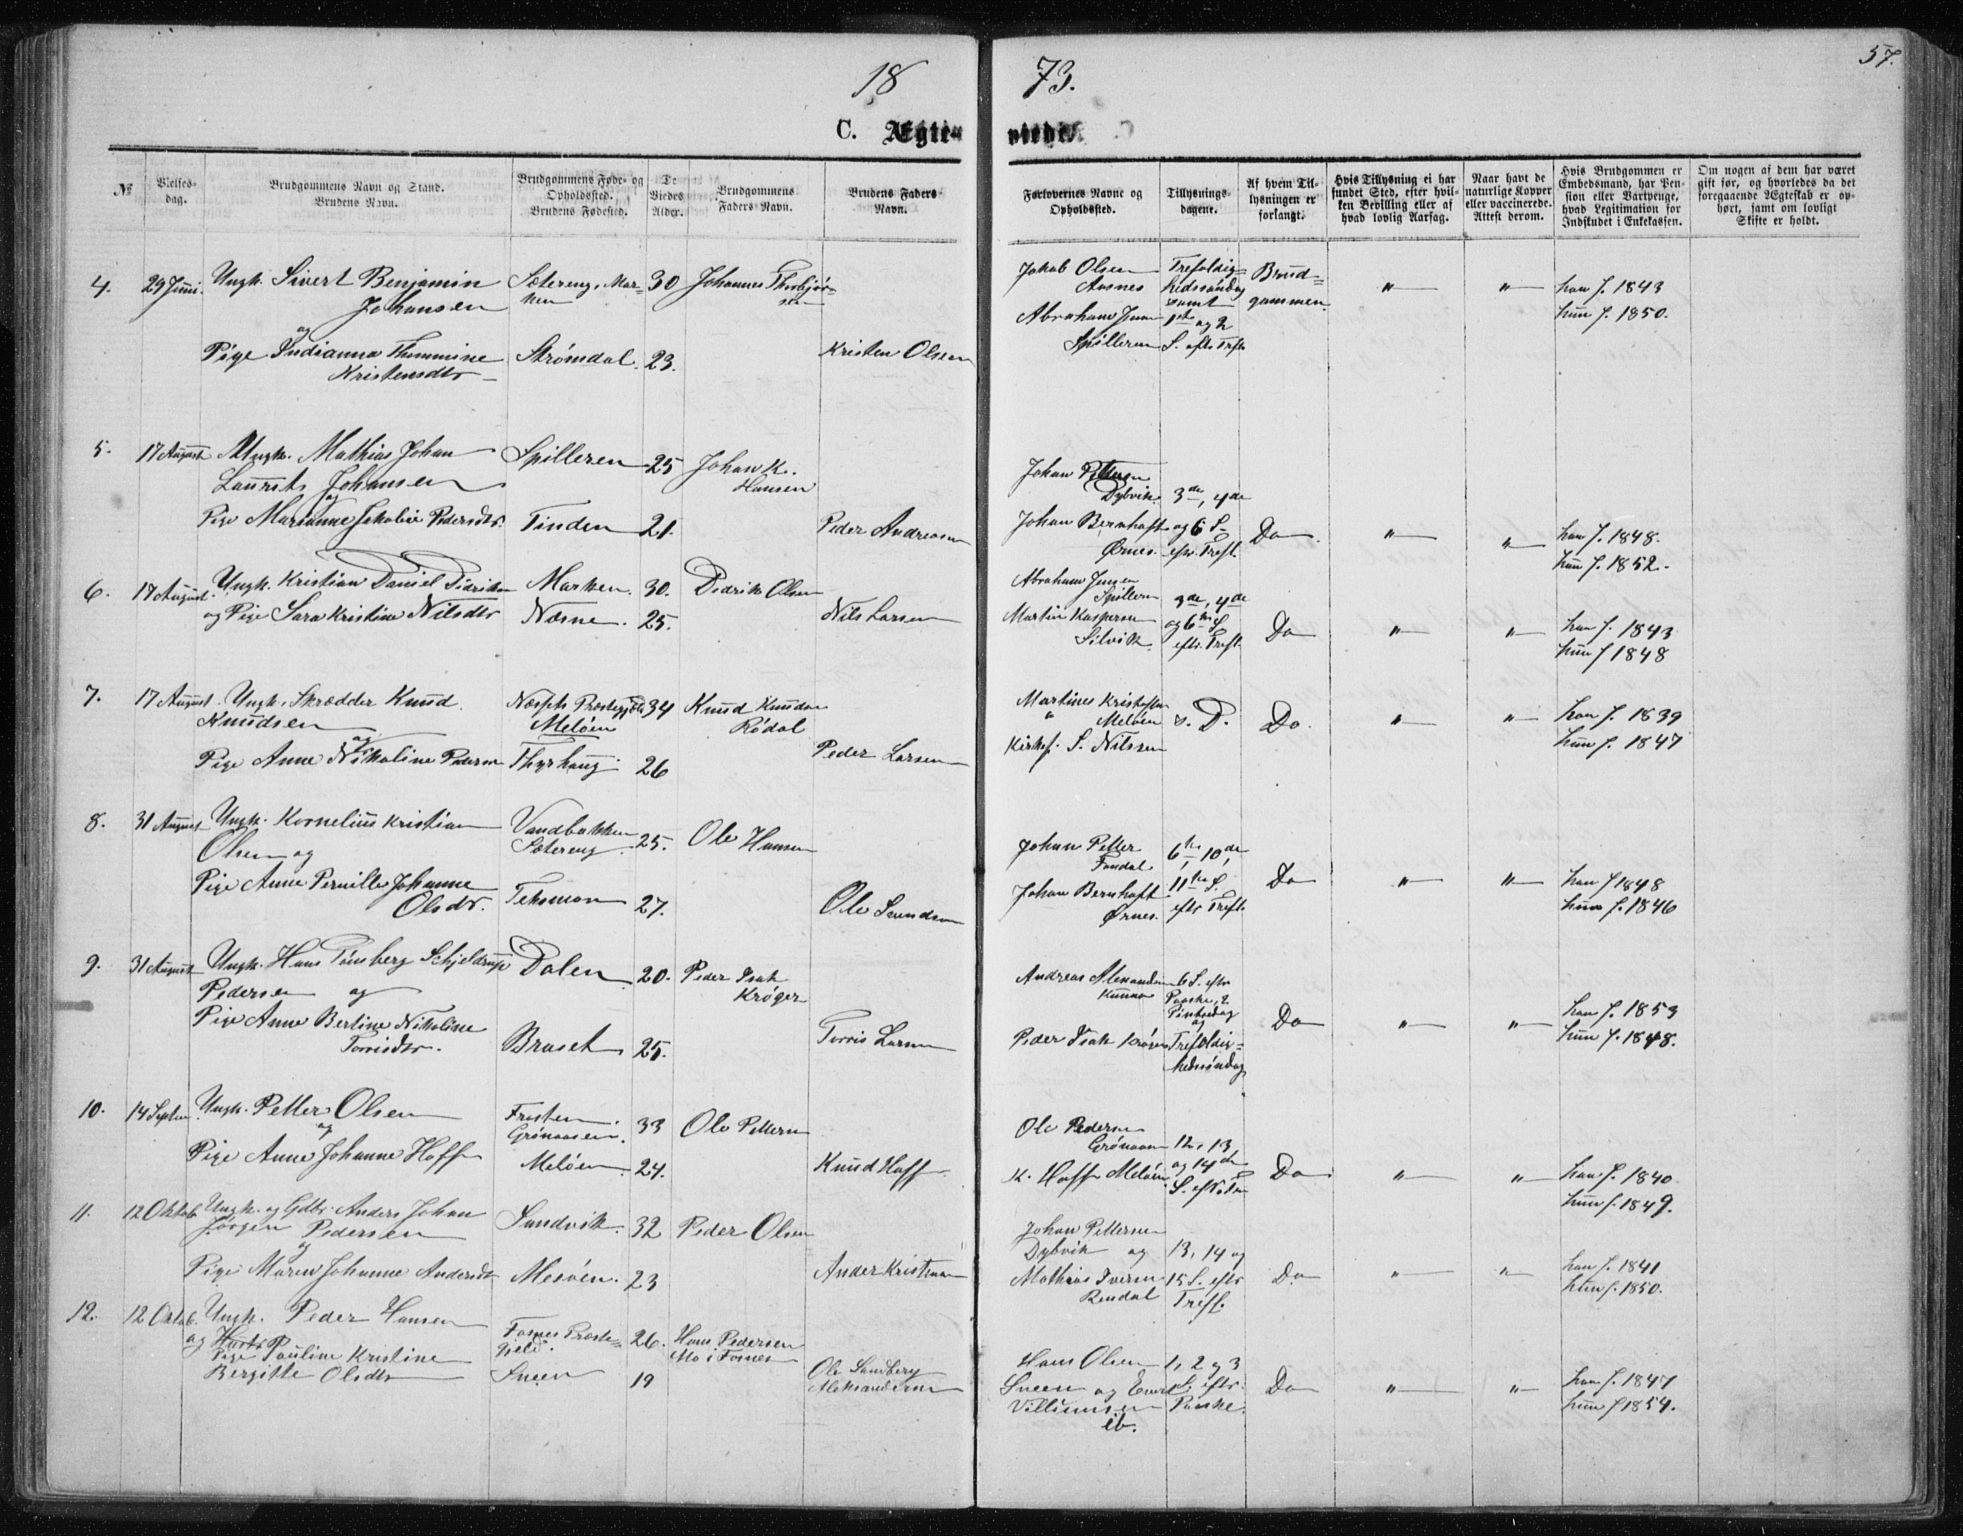 18 73.
57.
C. Ægteviede.
№
Vielses-dag.
Brudgommens Navn og Stand. Brudens Navn.
Brudgommens Føde- og Opholdssted. Brudens Fødested.
De Viedes Alder.
Brudgommens Faders Navn.
Brudens Faders Navn.
Forlovernes Navne og Opholdssted.
Tillysnings-dagene.
Af hvem Tillysningen er forlangt.
Hvis Tillysning ei har fundet Sted, efter hvilken Bevilling eller af hvad lovlig Aarsag.
Naar havt de naturlige Kopper eller vaccinerede. Attest derom.
Hvis Brudgommen er Embedsmand, har Pension eller Vartpenge, hvad Legitimation for Indskudet i Enkekassen.
Om nogen af dem har været gift før, og hvorledes da det foregaaende Ægteskab er ophørt, samt om lovligt Skifte er holdt.
4. 29 Juni. Ungk. Sivert Benjamin Sætereng, Mar- 30 Johannes Thorbjør- Jakob Olsen Trefoldig- Brud-
Johansen ken sen Aasnes hedssøndag gommen " " han f. 1843
og Abraham Jensen samt 1ste og 2 hun f. 1850.
Pige Indianna Thommine Strømdal. 23. Kristen Olsen Spilleren S. eftr Trefs
Kristensdtr
5. 17 August Ungk. Mathias Johan Spilleren 25 Johan K. Johan Pettersen
Laurits Johansen Hansen Dybvik. 3de, 4de
og
Pige Marianne Jakobie Pedersdtr. Tinden 21. Peder Andreasen Johan Bernhoft og 6 S. Do " " han f. 1848.
Ørnes. eftr. Tref. hun f. 1852.
6. 17 August. Ungk. Kristian Daniel Didriksen Marken. 30. Didrik Olsen Abraham Jensen
Spilleren 3de, 4de
og Pige Sara Kristine Nilsdtr Næsne. 25. Nils Larsen Martin Kaspersen og 6te S. Do " " han f. 1843
Selvik. eftr. Tref. hun f 1848
7. 17 August. Ungk. Skrædder Knud Næssets Præstegjeld 34 Knud Knudsen Martines Kristofersen
Knudsen Meløen Rødal " Meløen s. D. Do. " " han f. 1839
og Kirkes. S. Nilssen hun f. 1847
Pige Anne Nikoline Pedersen Thyrhaug. 26 Peder Larsen
8. 31 August Ungk. Kornelius Kristian Vandbakken 25. Ole Hansen Johan Petter 6te, 10de,
Olsen og Sætereng Fondal
Pige Anne Pernille Johanne Teksmon 27. Ole Svendsen Johan Bernhoft 11te S. Do " " han f 1848
Olsdtr. Ørnes. eftr Tref. hun f. 1846
9. 31 August Ungk. Hans Tønsberg Schjeldrup Dalen 20. Peder Isak Andreas Alexandersen 6 S. eftr
Pedersen og Krøger Kunna Paaske, 2. Pintsedag Do " " han f. 1853
Pige Anne Bertine Nikoline Braset 25. Torris Larsen Peder Isak Krøger og Trefoldig- hun f. 1848.
Torrisdtr. hedssøndag
10. 14 Septem Ungk. Petter Olsen Fresten 33 Ole Pettersen Ole Pedersen
og Grønaasen. Grønaasen 12, 13
Pige Anne Johanne Hoff Meløen. 24. Knud Hoff K. Hoff Meløen. og 14de Do " " han f. 1840
S. eftr. hun f. 1849.
11. 12 Oktob. Ungk. og Gdbr. Anders Johan Sandvik. 32 Peder Olsen Johan Pettersen
Jørgen Pedersen Dybvik og 13, 14 og
og
Pige Maren Johanne Andersdtr Mesøen. 23 Ander Kristian Mathias Iversen 15 S. eftr Do " " han f. 1841
Bendal Tref. hun f. 1850.
12. 12 Oktob. Ungk. Peder Hansen Fosnes Præste- 26. Hans Pedersen
og gjeld. Mo i Fosnes
Pige Pauline Kristine Ole Sandberg Hans Olsen 1, 2 og 3
Bergitte Olsdtr Sneen 19 Aleksandersen Sneen og Evert S. eftr. Do " " han f. 1847
Villumsen Paaske. hun f 1854.
ib.